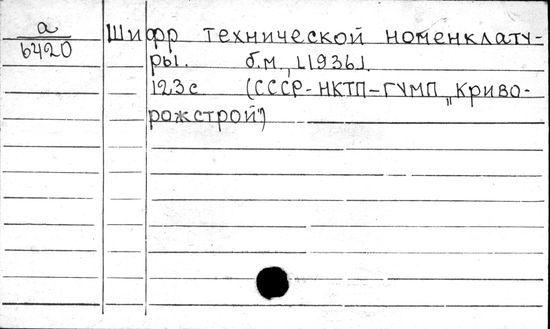 а
6420
Шифр технической номенклату-
ры. б.м., [1936].
123с (СССР-НКТП-ГУМП „Криво-
рожстрой")